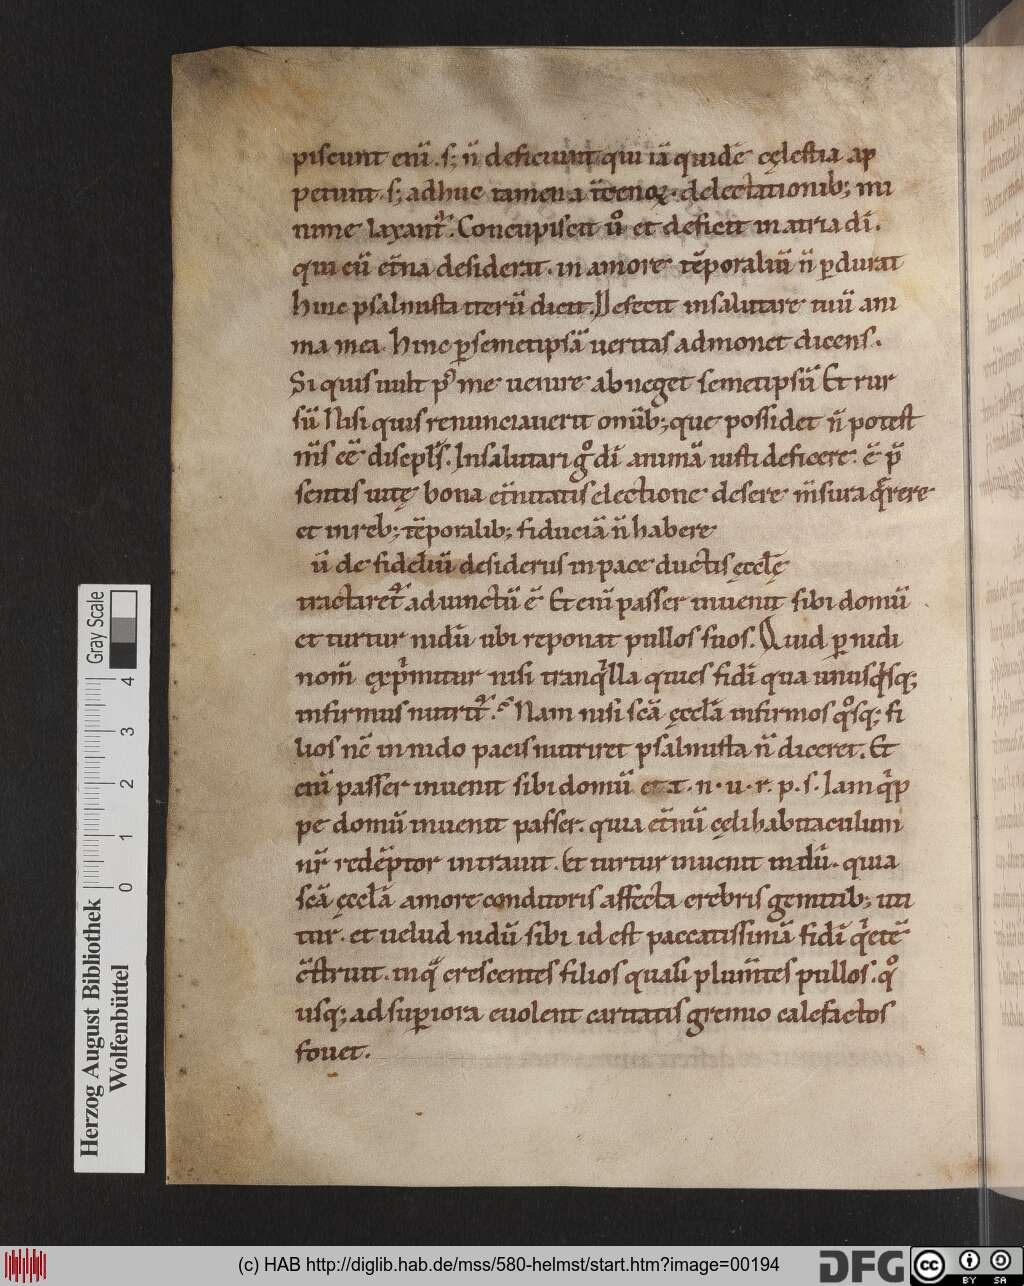 piscunt enī. s; n̄ deficiunt qui iā quidē cęlestia ap
petunt. s; adhuc tamen a t̄renoꝝ. delectationib; mi
nime laxant᷑. Concupiscit ů et deficit in atria dī.
qui cū et̄na desiderat. in amore tēporaliū n̄ ꝑdurat
hinc psalmista iterū dicit. Defecit in salutare tuū ani
ma mea. hinc ꝑ semetipsā ueritas admonet dicens.
Si quis uult p᷒ me uenire abneget semetipsū Et rur
sū Nisi quis renunciauerit omīb; que possidet n̄ potest
m̄s eē discipl̄s. In salutari g̊ dī animā iusti deficere. ē p̄
sentis uitę bona et̄nitatis electione deserere
et in reb; tēporalib; fiduciā n̄ habere
ū de fideliū desideriis in pace ductis ęccl̄ę
tractaret᷑ adiunctū ē Et enī passer inuenit sibi domū
et turtur nidū ubi reponat pullos suos. Quid ꝑ nidi
nom̄ exp̍mitur nisi tranq̍lla quies fidī qua unusq̍sq;
infirmus nutrit᷑. Nam nisi sc̄a ęccl̄a infirmos q̊sq; fi
lios nc̄ in nido pacis nutriret psalmista n̄ diceret. Et
enī passer inuenit sibi domū et t. n. u. r. p. s. Iam q̍p
pe domū inuenit passer. quia et̄nū cęli habitaculum
nr̄ redēptor intrauit. Et turtur inuenit nidū. quia
sc̄a ęccl̄a amore conditoris affecta crebris gemitib; uti
tur. et uelud nidū sibi id est paccatissimā fidī q̍etē
c̄struit. in q̄ crescentes filios quasi plum̄tes pullos. q̊
usq; ad suꝑiora euolent caritatis gremio calefactos
fouet.
Herzog August Bibliothek
Wolfenbüttel
0 1 2 3 4
Gray Scale
(c) HAB http://diglib.hab.de/mss/580-helmst/start.htm?image=00194
DFG
cc BY SA